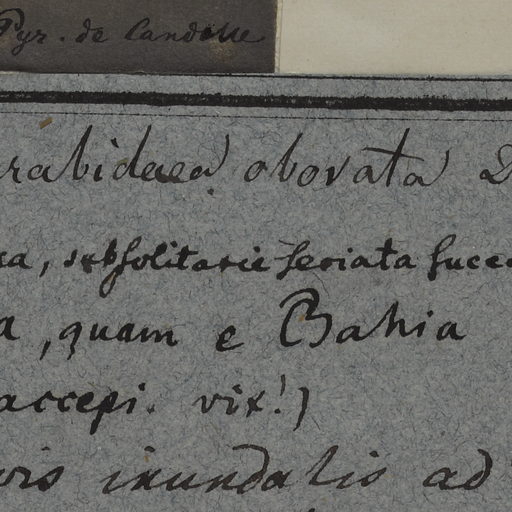 Pyr. de Candolle
rabidaea obovata D
sa, subsolitarie seriata succe
a, quam e Bahia
accepi. vix!)
vis inundatis ad